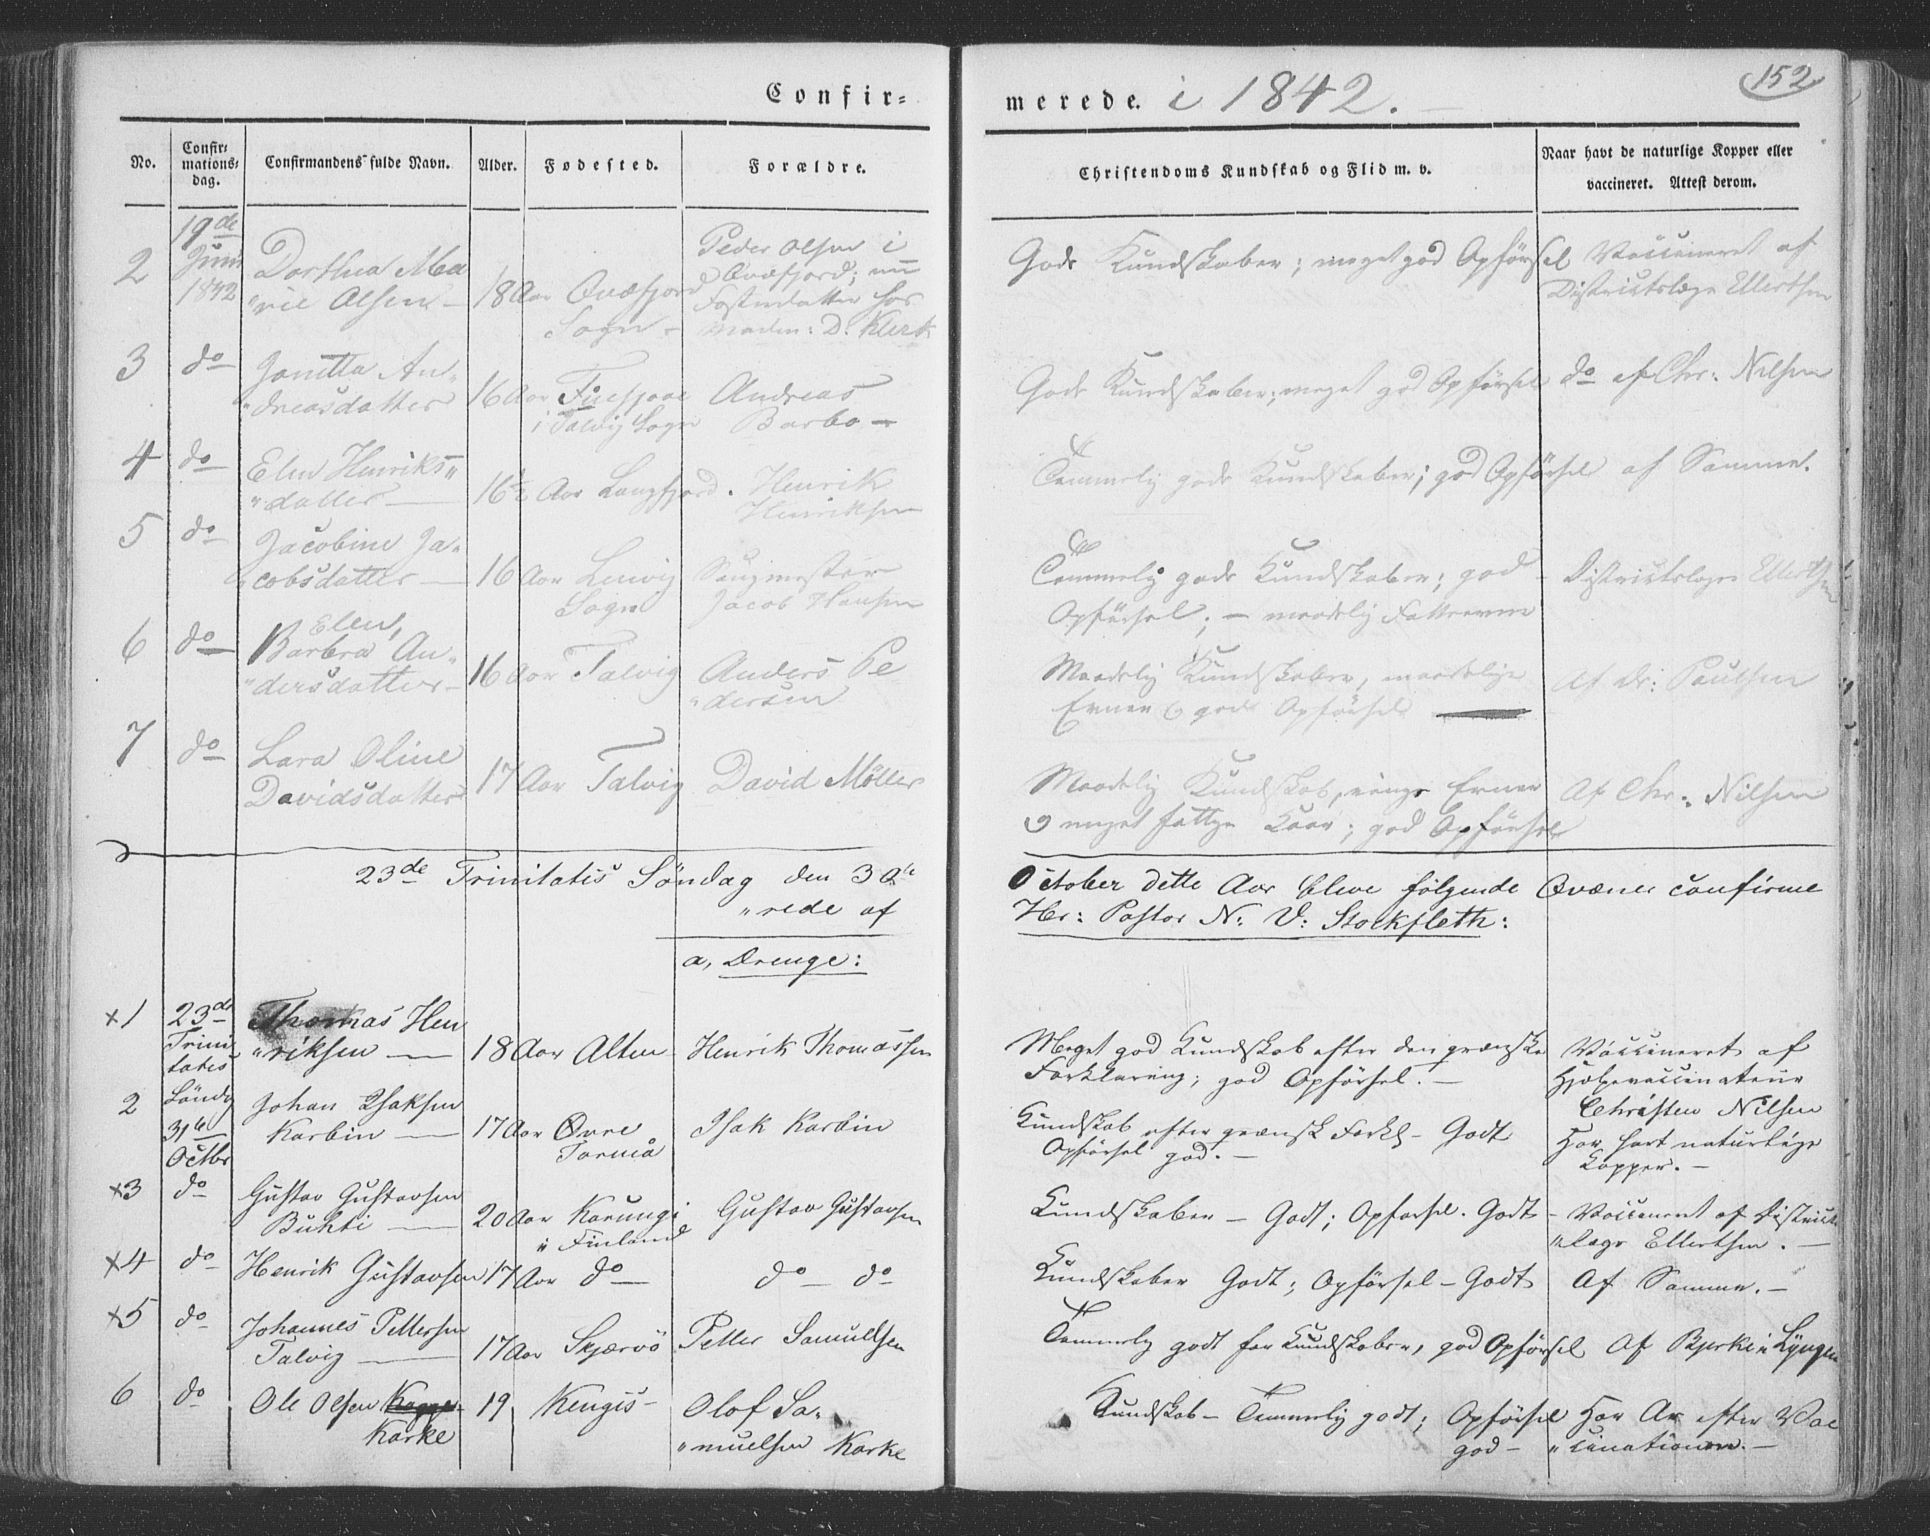 Confir=
merede. i 1842.
152
No.
Confir= mations= dag.
Confirmandens fulde Navn.
Alder.
Fødested.
Forældre.
Christendoms Kundskab og Flid m. v.
Naar havt de naturlige Kopper eller
vaccineret. Attest derom.
2
19de
Juni
1842
Dorthea Ma
"rie Olsen
18 Aar
Qvæfjord
Sogn
Peder Olsen i
Qvæfjord; nu
Fosterdatter hos
Madm: D. Klerk
Gode Kundskaber; meget god Opførsel
Vaccineret af
Districtslæge Ellertsen
3
do
Jonetta An"
"dreasdatter
16 Aar
i Talvig Sogn
Andreas
Barbo
Gode Kundskaber; meget god Opførsel
do af Chr: Nilsen
4
do
Elen Henriks"
"datter
16½ Aar
Langfjord.
Henrik
Henriksen
Temmelig gode Kundskaber; god Opførsel
af Samme.
5
do
Jacobine Ja"
"cobsdatter
16 Aar
Sogn
Jacob Hansen
Temmelig gode Kundskaber; god
Opførsel; – maadelig Fatteevne
Districtslæge Ellertsen
6
do
Elen,
Barbra An"
"dersdatter
16 Aar
Talvig
Anders Pe
"dersen
Maadelig Kundskaber, maadelige
Evner og gode Opførsel
Af Dr: Paulsen
7
do
Lara Oline
Davidsdatter
17 Aar
Talvig
David Møller
Maadelig Kundskab, ringe Evner
og meget fattige Kaar; god Opførsel
Af Chr: Nilsen
23de Trinitatis Søndag den 30te
October dette Aar bleve følgende Qvæner confirme
"rede af
Hr: Pastor N. V: Stockfleth:
a, Drenge:
x1
23de
Trini
tatis
Søndg
31te
Octbr
Thomas Hen
"riksen
18 Aar
Alten
Henrik Thomassen
Meget god Kundskab efter den grænske
Forklaring; god Opførsel.
Vaccineret af
Hjelpevaccinateur
Christen Nilsen
2
Johan Isaksen
Karbin
17 Aar
Øvre
Torneå
Isak Karbin
Kundskab efter grænsk Forkl – Godt
Opførsel god.
Har havt naturlige
Kopper.
x3
do
Gustav Gustavsen
Buhti
20 Aar
Karungi
i Finland
Gustav Gustavsen
Kundskaber – Godt; Opførsel. Godt
Vaccineret af District
"læge Ellertsen.
x4
do
Henrik Gustavsen
17 Aar
do
do do
Kundskaber Godt; Opførsel – Godt
Af Samme.
x5
do
Johannes Pettersen
Talvig
17 Aar
Skjærvö
Petter Samuelsen
Temmelig godt for Kundskaber, god Opførsel
Af Bjerke i Lyngen
6
do
Ole Olsen
Karke
19
Kengis
Olof Sa"
"muelsen Karke
Kundskab – Temmelig godt; Opførsel
god
Har Ar efter Vac
"cinationen.